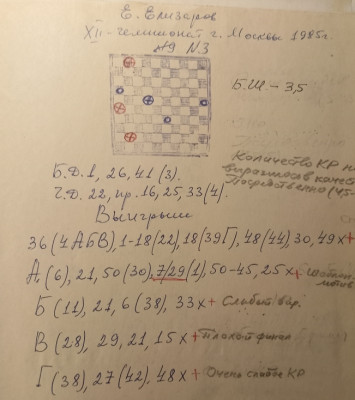 Е. Елизаров
XII - чемпионат г. Москвы 1985г.
№9 N3
Б.Ш. – 3,5
Количество КР не
Посредственно (45-
Б.Д. 1, 26, 41 (3).
Ч.Д. 22, пр. 16, 25, 33 (4).
Выигрыш
36 (4АБВ), 1-18 (22), 18 (39Г), 48 (44), 30, 49х+
А (6), 21, 50 (30), 7/29 (1), 50-45, 25х+
мотив
Б (11), 21, 6 (38), 33х+ Слабый вар.
В (28), 29, 21, 15х+ Плохой финал
Г (38), 27 (42), 48х+ Очень слабое КР